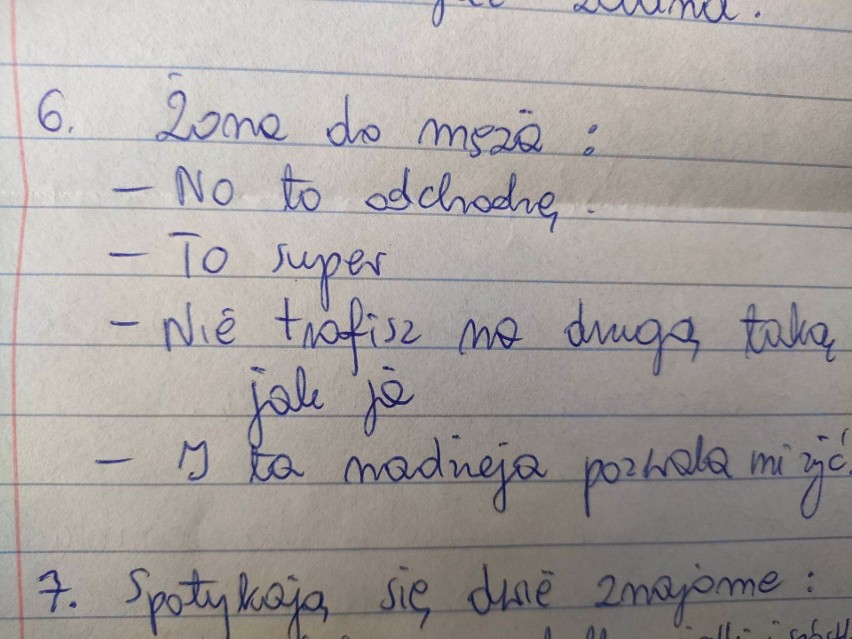 6. Żona do męża :
- No to odchodzę.
- To super
- Nie trafisz na drugą taką
jak ja
- I ta nadzieja pozwala mi żyć.
7. Spotykają się dwie znajome :